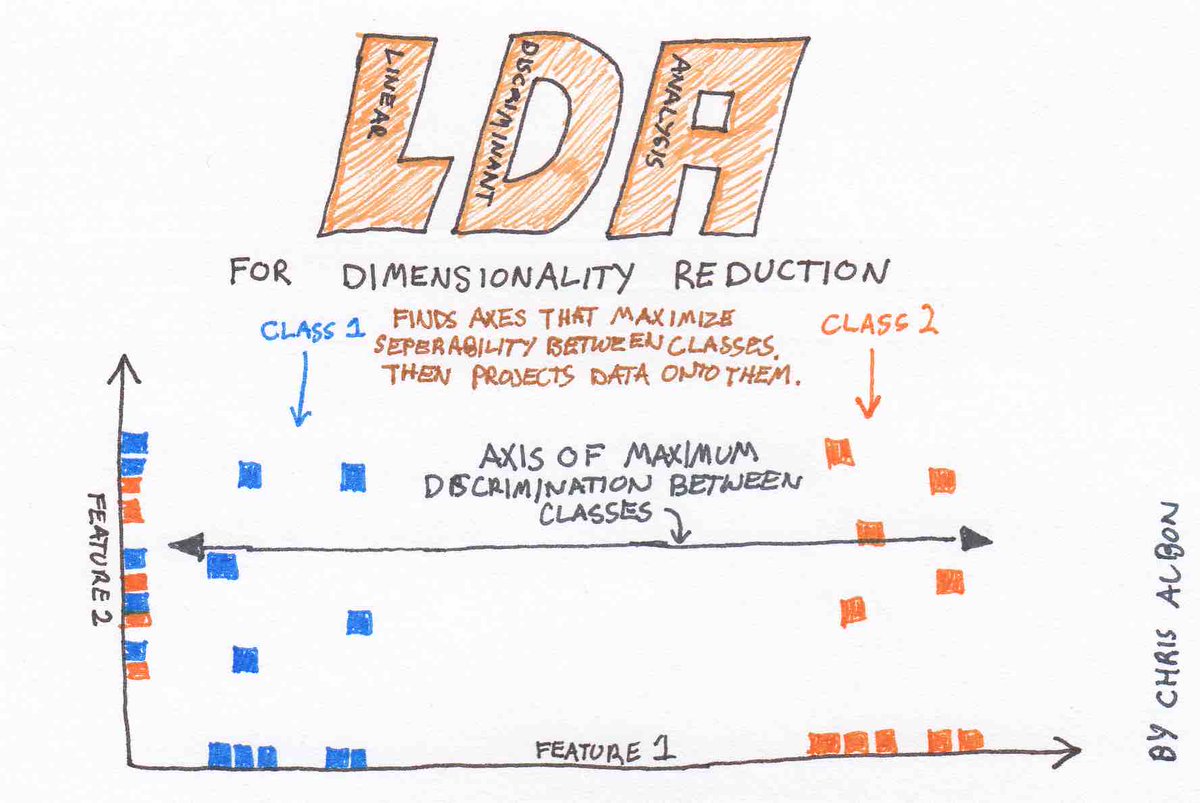 LDA
LINEAR
DISCRIMINANT
ANALYSIS
FOR DIMENSIONALITY REDUCTION
CLASS 1
FINDS AXES THAT MAXIMIZE
SEPERABILITY BETWEEN CLASSES,
THEN PROJECTS DATA ONTO THEM.
CLASS 2
AXIS OF MAXIMUM
DISCRIMINATION BETWEEN
CLASSES
FEATURE 2
FEATURE 1
BY CHRIS ALBON